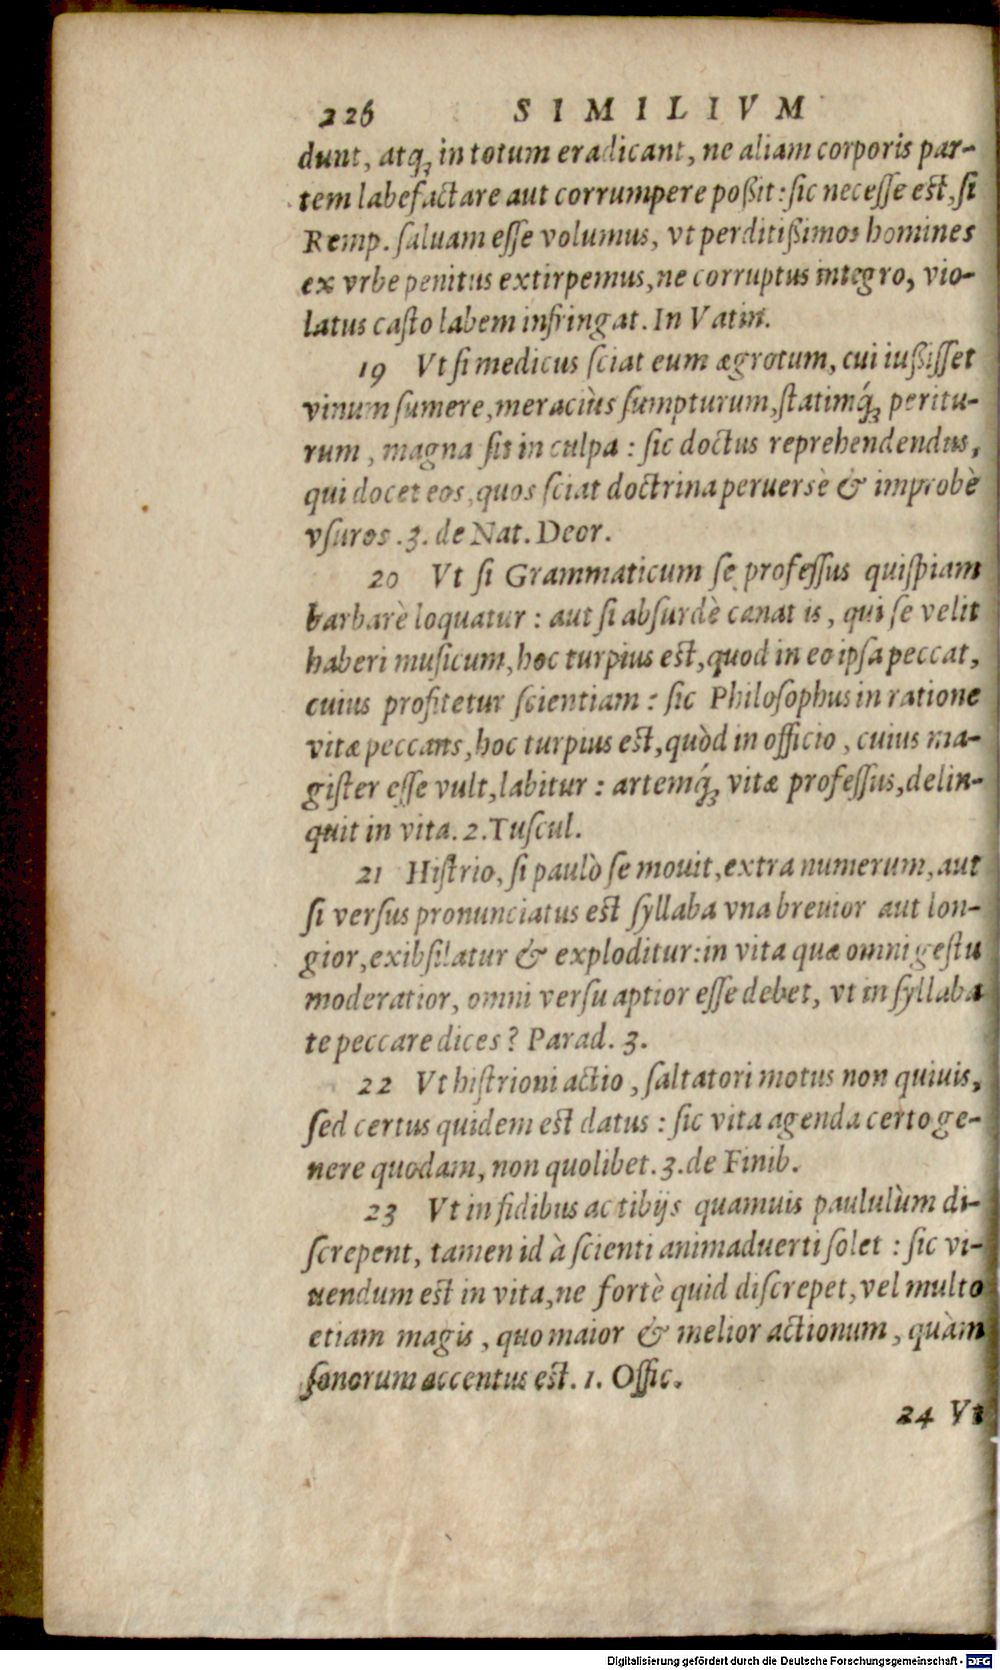 226 SIMILIVM
dunt, atq́; in totum eradicant, ne aliam corporis par-
tem labefactare aut corrumpere poßit: sic necesse est, si
Remp. saluam esse volumus, vt perditißimos homines
ex vrbe penitus extirpemus, ne corruptus integro, vio-
latus casto labem infringat. In Vatin.
19 Vt si medicus sciat eum ægrotum, cui iußisset
vinum sumere, meraciùs sumpturum, statimq́; peritu-
rum, magna sit in culpa: sic doctus reprehendendus,
qui docet eos, quos sciat doctrina peruersè & improbè
vsuros. 3. de Nat. Deor.
20 Vt si Grammaticum se professus quispiam
barbarè loquatur: aut si absurdè canat is, qui se velit
haberi musicum, hoc turpius est, quod in eo ipsa peccat,
cuius profitetur scientiam: sic Philosophus in ratione
vitæ peccans, hoc turpius est, quòd in officio, cuius ma-
gister esse vult, labitur: artemq́; vitæ professus, delin-
quit in vita. 2. Tuscul.
21 Histrio, si paulò se mouit, extra numerum, aut
si versus pronunciatus est syllaba vna breuior aut lon-
gior, exibsilatur & exploditur: in vita quæ omni gestu
moderatior, omni versu aptior esse debet, vt in syllaba
te peccare dices? Parad. 3.
22 Vt histrioni actio, saltatori motus non quiuis,
sed certus quidem est datus: sic vita agenda certo ge-
nere quodam, non quolibet. 3. de Finib.
23 Vt in fidibus ac tibijs quamuis paululùm di-
screpent, tamen id à scienti animaduerti solet: sic vi-
uendum est in vita, ne fortè quid discrepet, vel multo
etiam magis, quo maior & melior actionum, quàm
sonorum accentus est. 1. Offic.
24 Vt
Digitalisierung gefördert durch die Deutsche Forschungsgemeinschaft - DFG